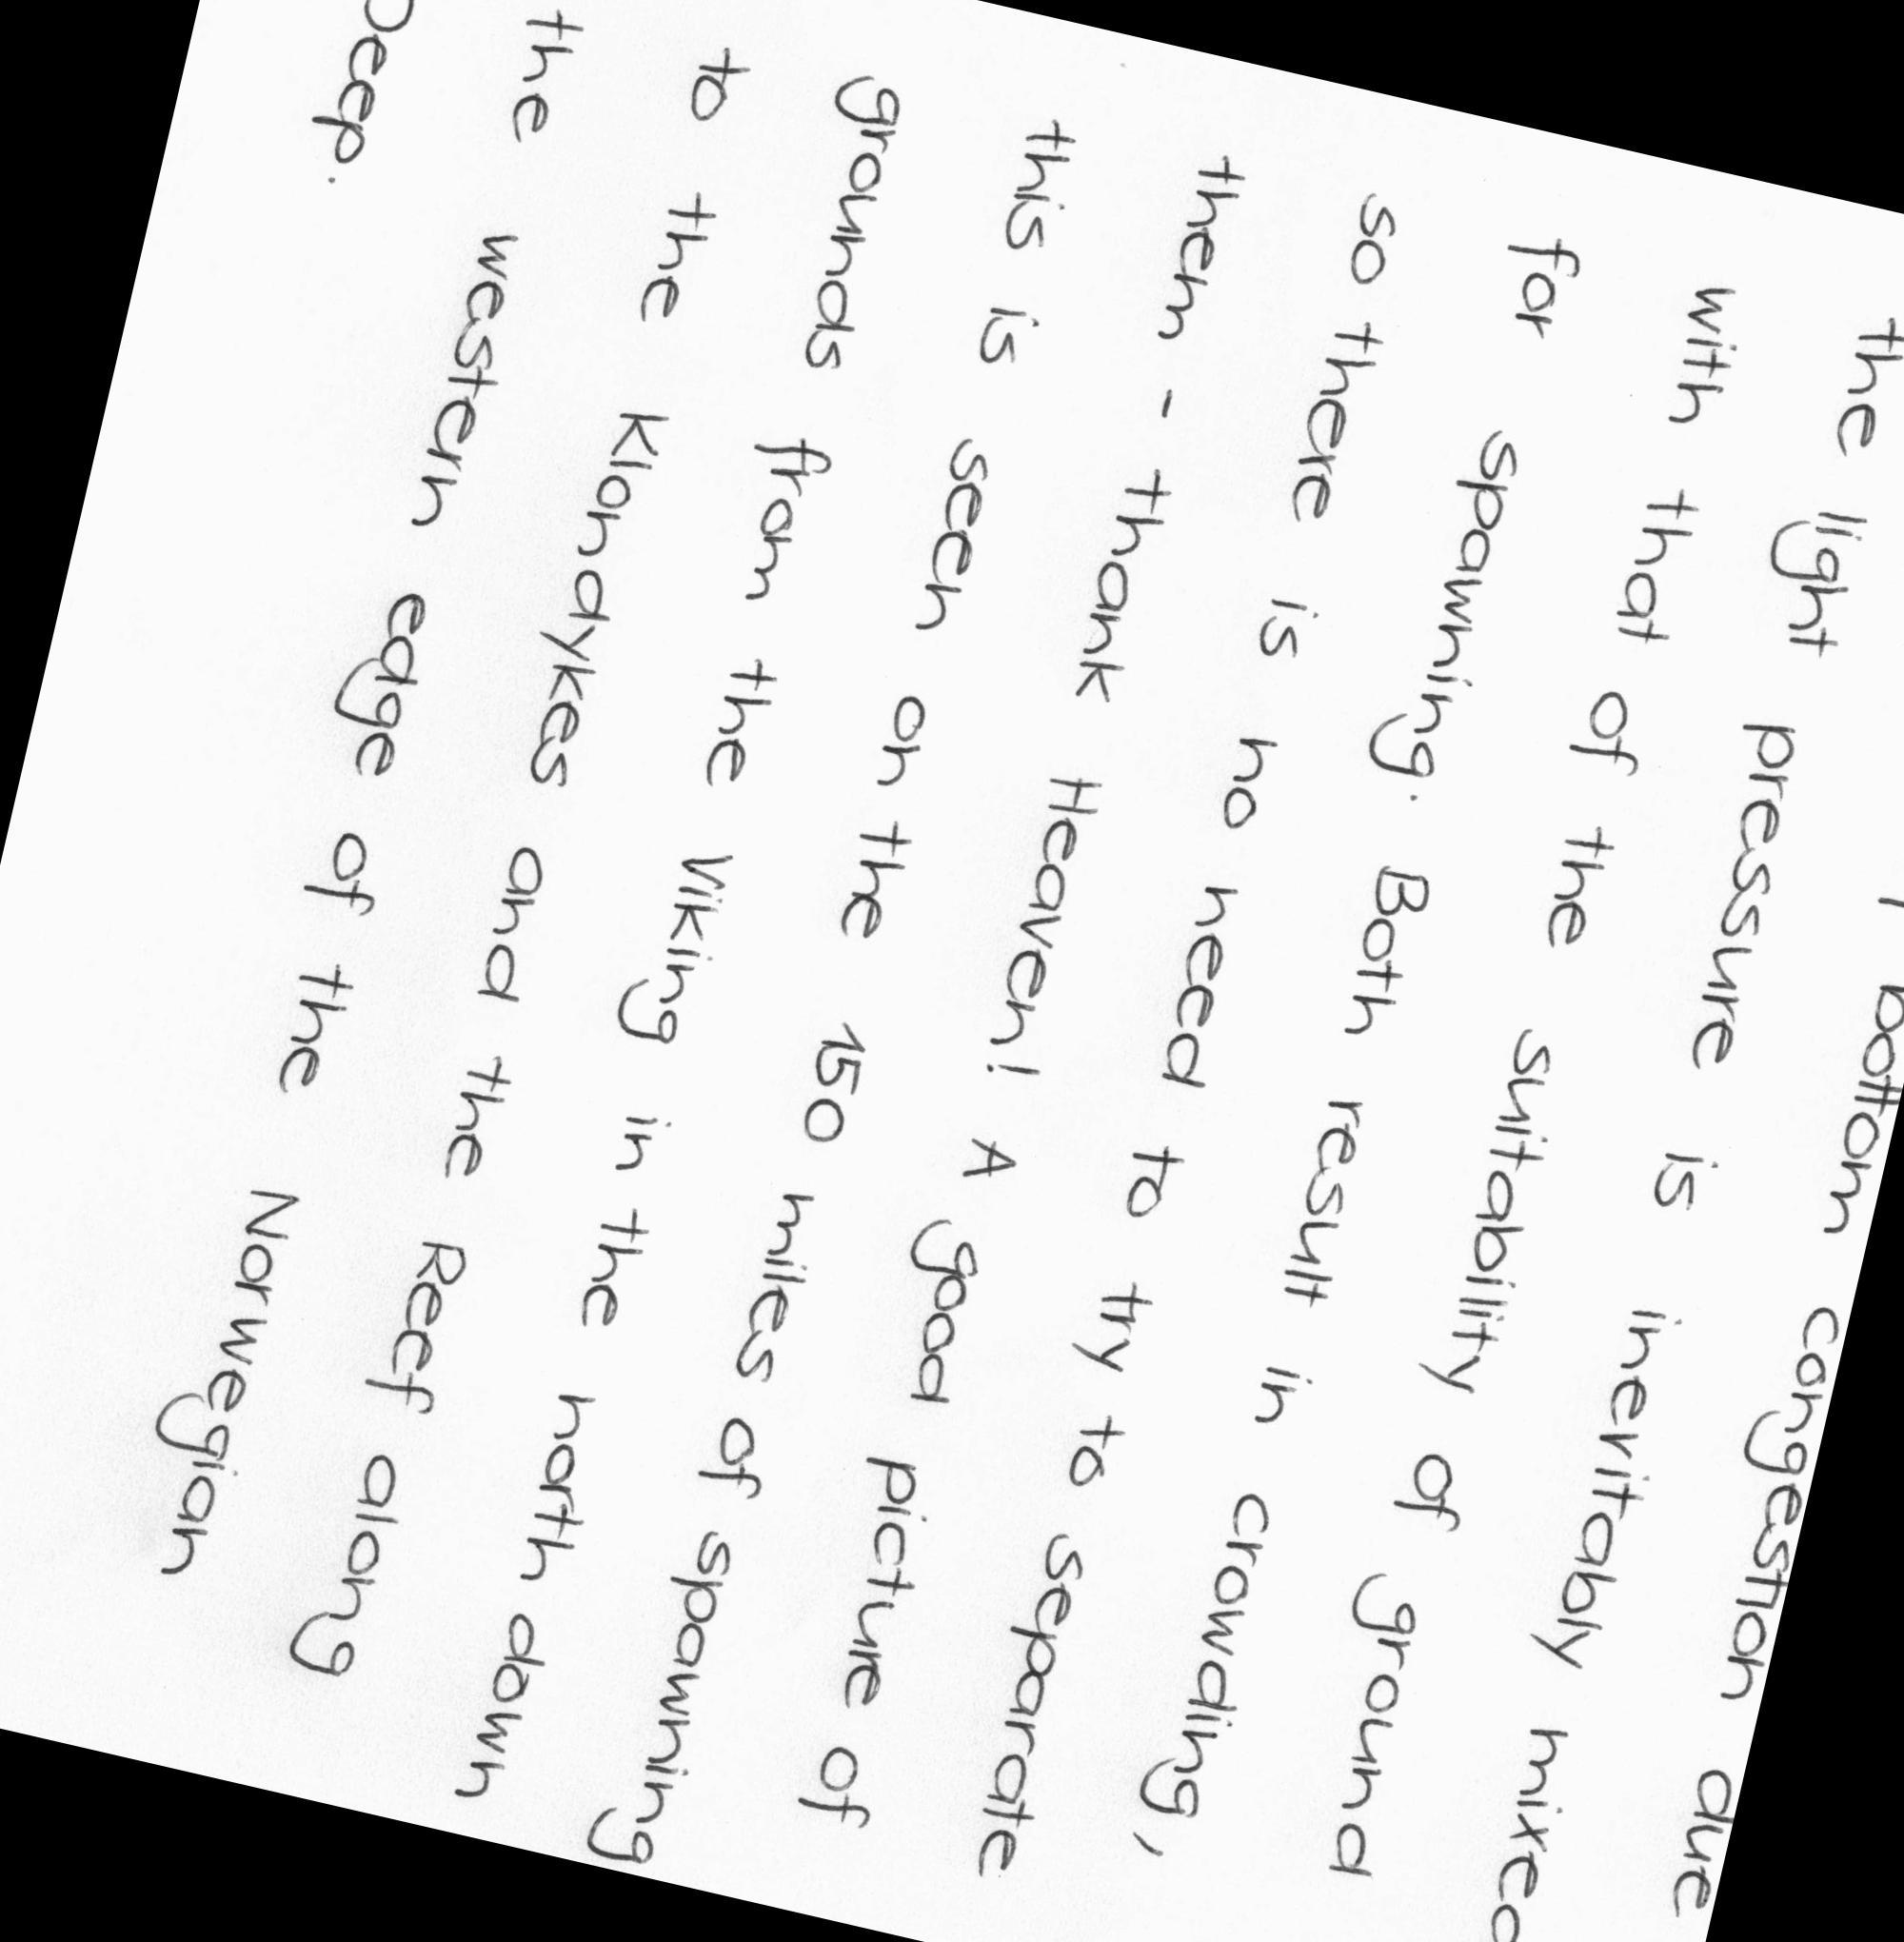 bottom congestion due
the light pressure is inevitably mixed
with that of the suitability of ground
for spawning. Both result in crowding,
so there is no need to try to separate
them - thank Heaven! A good picture of
this is seen on the 150 miles of spawning
grounds from the Viking in the north down
to the Klondykes and the Reef along
the western edge of the Norwegian
Deep.